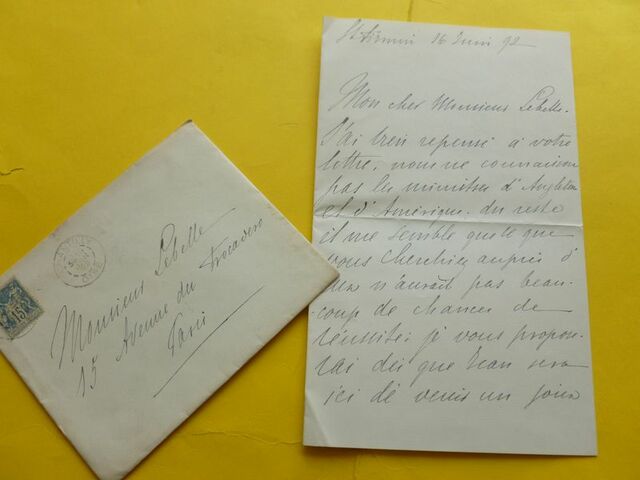 St Firmin 16 Juin 92
Mon cher Monsieur Lebelle.
J'ai bien repensé à votre
lettre, nous ne connaissons
pas les ministres d'Angleterre
et d'Amérique. du reste
il me semble que ce que
vous cherchiez auprès d'
eux n'aurait pas beau-
coup de chances de
réussite: je vous propose-
rai dès que Jean sera
ici de venir un jour
Monsieur Lebelle
15 Avenue du Trocadero
Paris
15